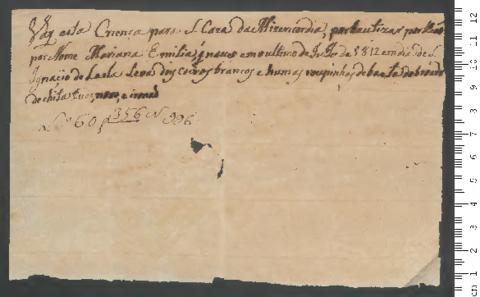 Vay esta Criença para S. Caza da Mizericordia, por bautizar
por Nome Mariana Emilia q naceo em o ultimo de Julho de 1812 em dia de S.
Ignacio de Laola Leva dois coeiros brancos e humas roupinhas de baeta
de chita
Lº 60 f 356 N 996
cm 1 2 3 4 5 6 7 8 9 10 11 12